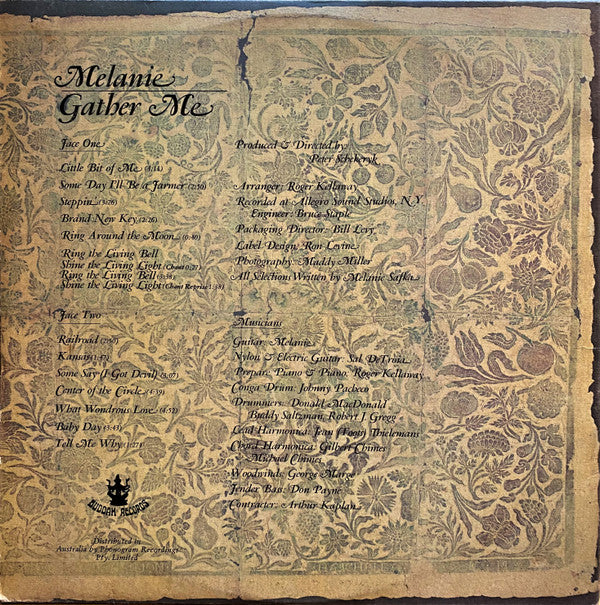 Melanie
Gather Me
Face One
Little Bit of Me
Some Day I'll Be a Farmer
Steppin
Brand New Key (2:26)
Ring Around the Moon
Ring the Living Bell
Shine the Living Light (Chant 0:27)
Ring the Living Bell
Shine the Living Light (Chant Reprise 1:48)
Face Two
Railroad (2:50)
Kansas
Some Say (I Got Devil)
Center of the Circle
What Wondrous Love (4:52)
Baby Day (3:43)
Tell Me Why
BUDDAH RECORDS
Distributed in
Australia by Phonogram Recordings
Pty. Limited
Produced & Directed by:
Peter Schekeryk
Arranger: Roger Kellaway
Recorded at Allegro Sound Studios, N.Y.
Engineer: Bruce Staple
Packaging Director: Bill Levy
Label Design: Ron Levine
Photography: Maddy Miller
All Selections Written by Melanie Safka
Musicians
Guitar: Melanie
Nylon & Electric Guitar: Sal DeTroia
Prepar. Piano & Piano: Roger Kellaway
Conga Drum: Johnny Pacheco
Drummers: Donald MacDonald
Buddy Saltzman, Robert J. Gregg
Lead Harmonica: Jean (Toots) Thielemans
Chord Harmonica: Gilbert Chimes
Michael Chimes
Woodwinds: George Marge
Fender Bass: Don Payne
Contracter: Arthur Kaplan